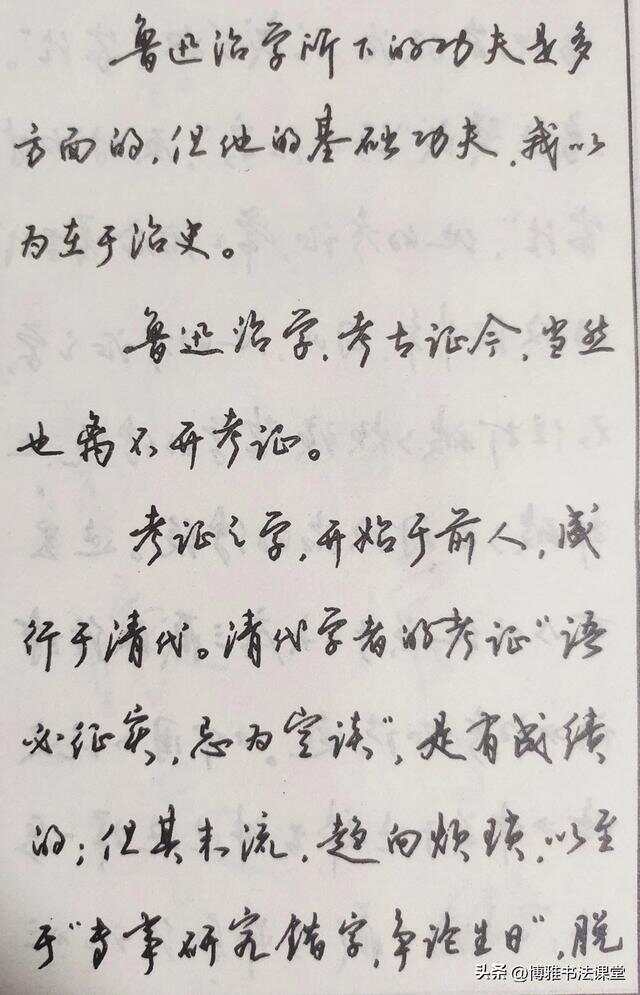 鲁迅治学所下的功夫是多
方面的,但他的基础功夫,我以
为在于治史。
鲁迅治学,考古证今,当然
也离不开考证。
考证之学,开始于前人,盛
行于清代。清代学者的考证“语
必征实,忌为空谈”,是有成绩
的;但其末流,趋向烦琐,以至
于“专事研究错字,争论生日”,脱
头条 @博雅书法课堂